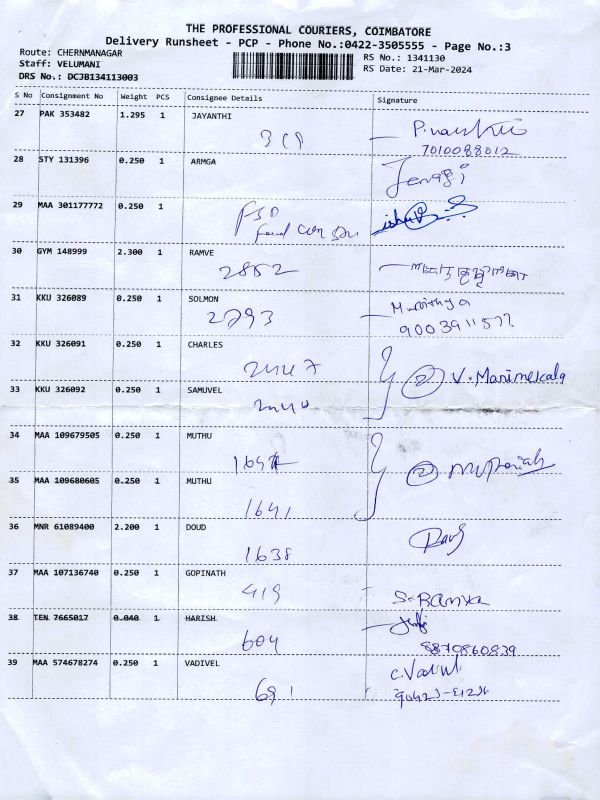 THE PROFESSIONAL COURIERS, COIMBATORE
Delivery Runsheet - PCP - Phone No.:0422-3505555 - Page No.:3
Route: CHERNMANAGAR
RS No.: 1341130
Staff: VELUMANI
RS Date: 21-Mar-2024
DRS No.: DCJB134113003
S No Consignment No Weight PCS Consignee Details Signature
27 PAK 353482 1.295 1 JAYANTHI
7010088012
28 STY 131396 0.250 1 ARMGA
29 MAA 301177772 0.250 1
30 GYM 148999 2.300 1 RAMVE
2852
31 KKU 326089 0.250 1 SOLMON
2793
9003911577
32 KKU 326091 0.250 1 CHARLES
2 V. Manimekala
33 KKU 326092 0.250 1 SAMUVEL
34 MAA 109679505 0.250 1 MUTHU
2
35 MAA 109680605 0.250 1 MUTHU
1641
36 MNR 61089400 2.200 1 DOUD
1638
37 MAA 107136740 0.250 1 GOPINATH
419 S. RAMYA
38 TEN 7665017 0.040 1 HARISH
604 8870860839
39 MAA 574678274 0.250 1 VADIVEL
C. Vadivel
691